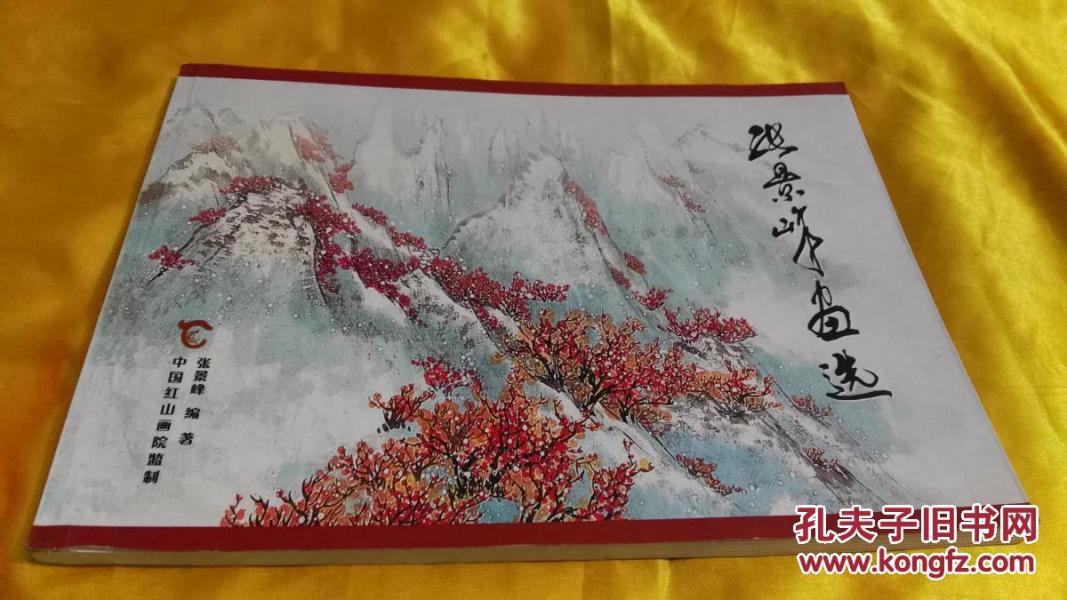 张景峰画选
张景峰 编 著
中国红山画院监制
孔夫子旧书网
www.kongfz.com